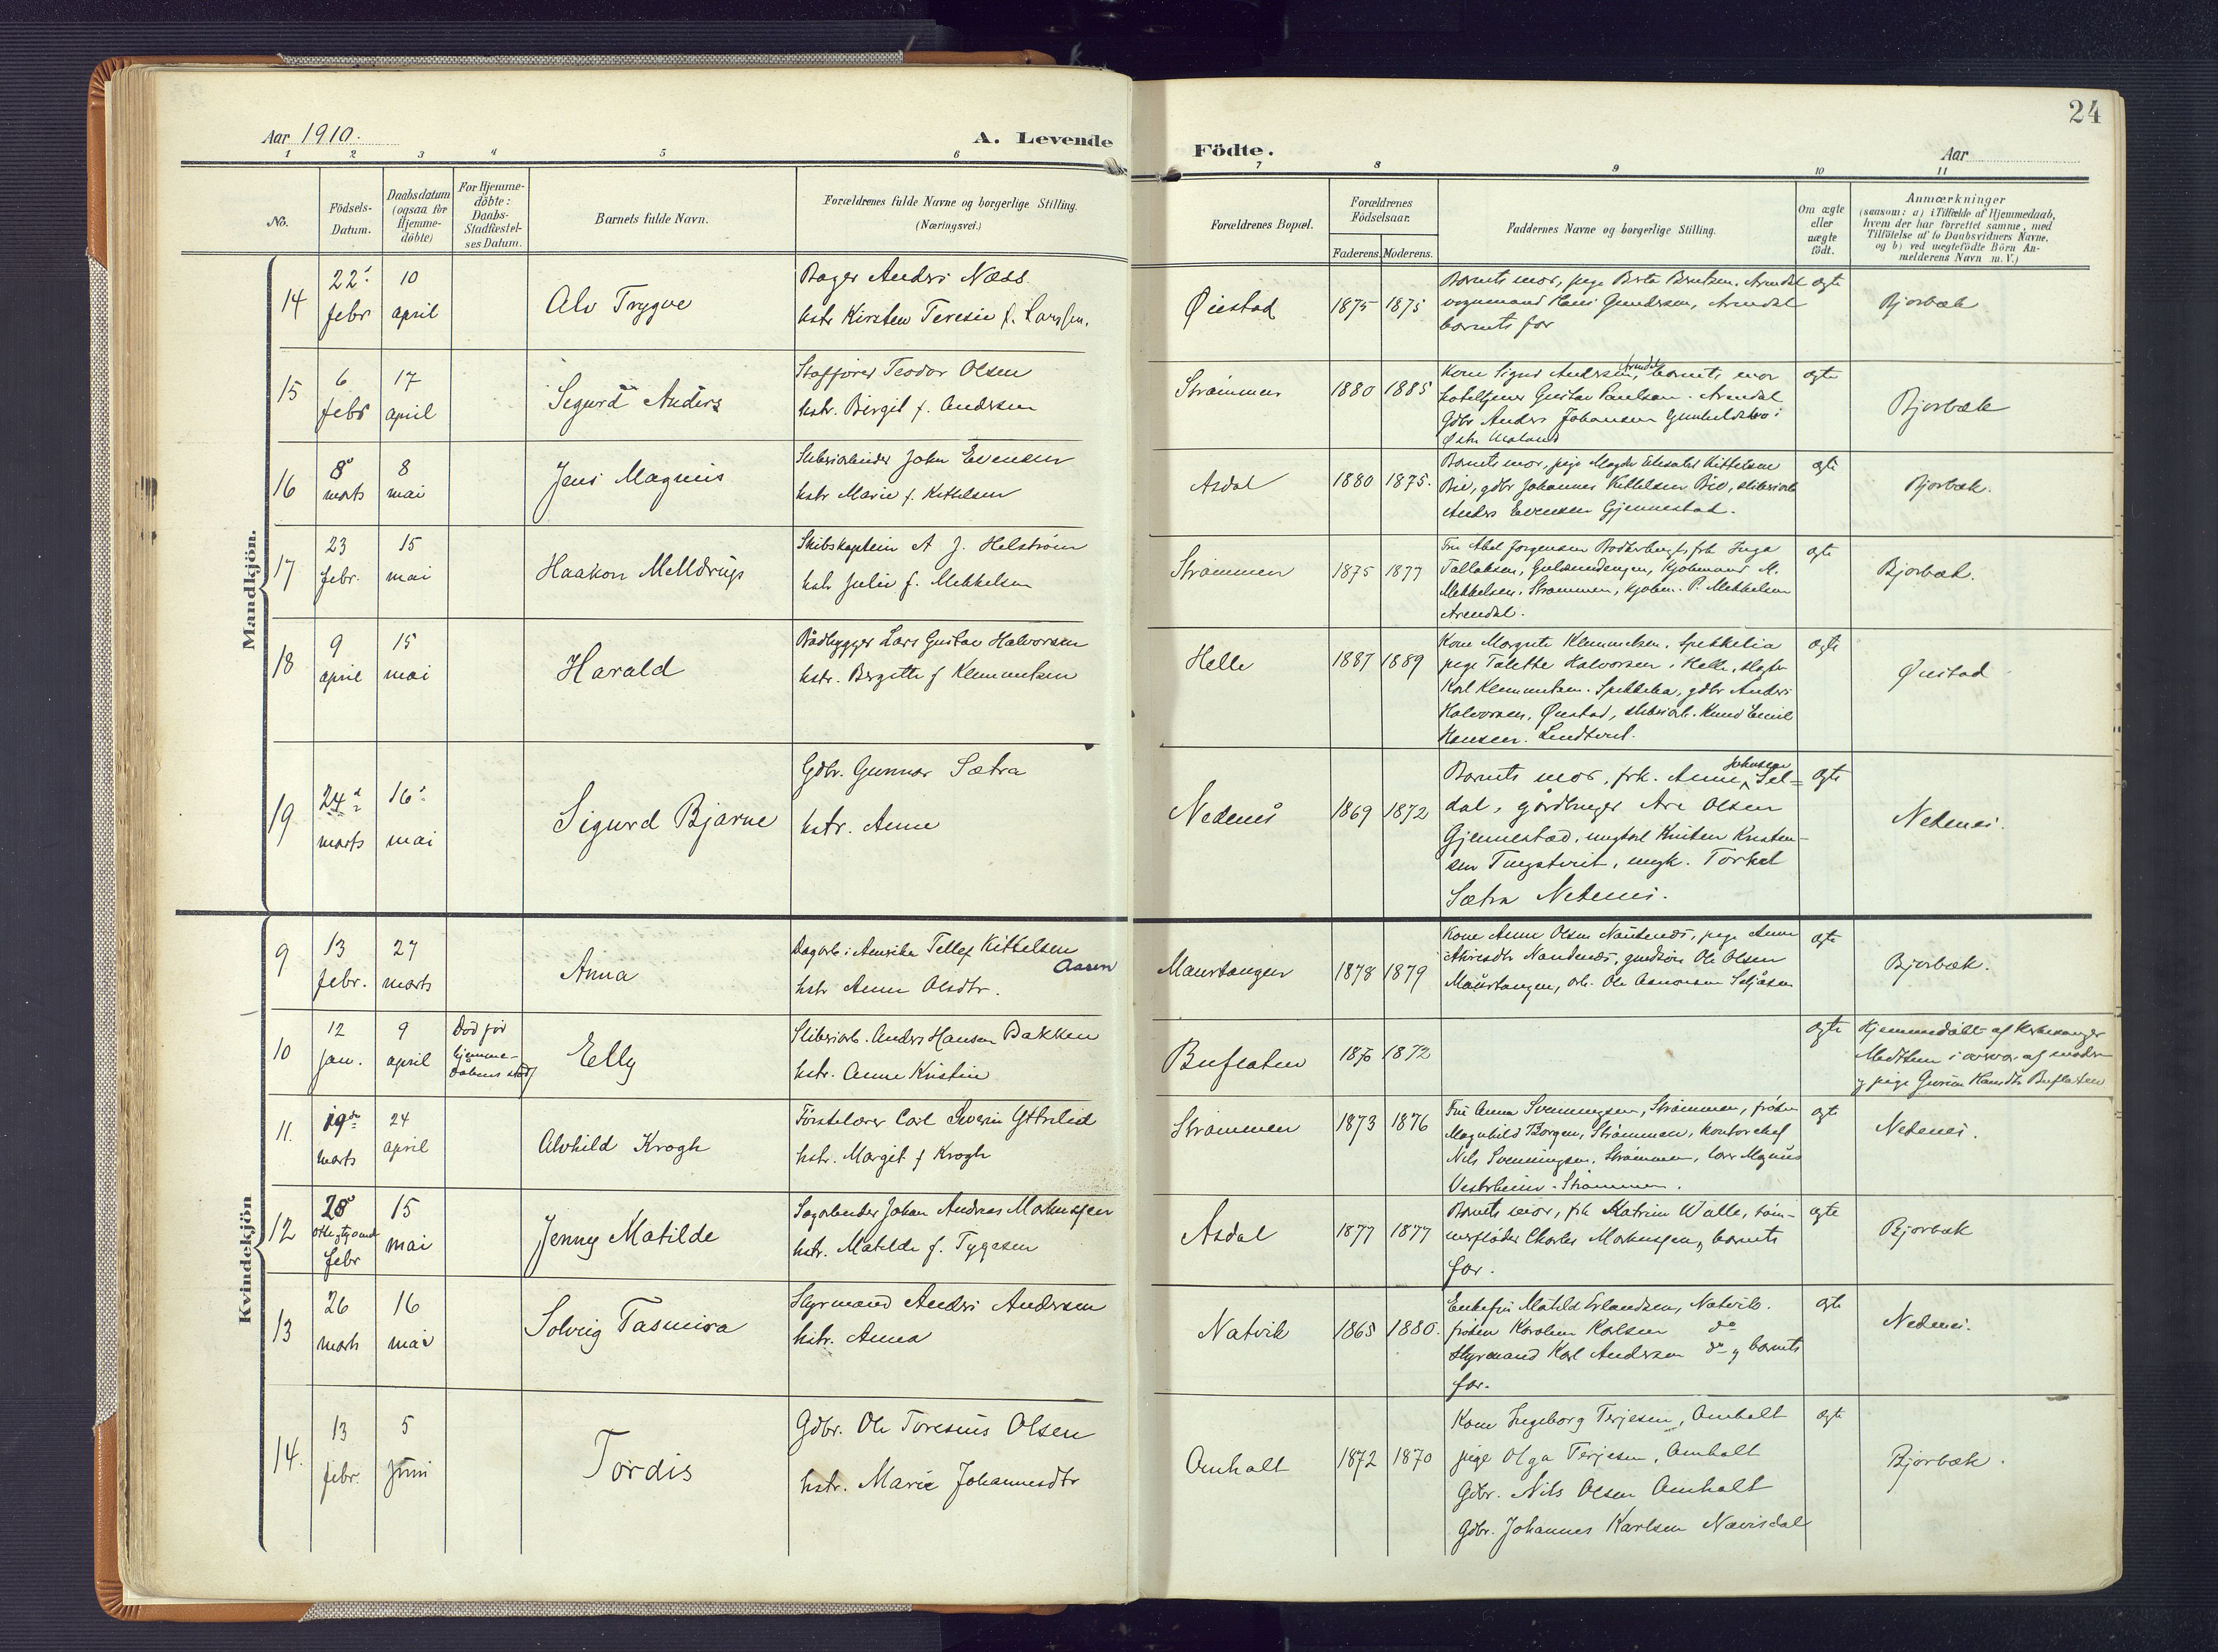 24
Aar 1910.
A. Levende
Födte.
Aar
1 2 3 4 5 6 7 8 9 10 11
No.
Födsels-Datum.
Daabsdatum (ogsaa for Hjemme-döbte)
For Hjemme-döbte: Daabs-Stadfæstel-ses Datum.
Barnets fulde Navn.
Forældrenes fulde Navne og borgerlige Stilling. (Næringsvei.)
Forældrenes Bopæl.
Forældrenes Födselsaar.
Faderens. Moderens.
Faddernes Navne og borgerlige Stilling.
Om ægte eller uægte födt.
Anmærkninger
(saasom: a) i Tilfælde af Hjemmedaab,
hvem der har forrettet samme, med
Tilföielse af to Daabsvidners Navne,
og b) ved uægtefödte Börn An-
melderens Navn m. V.)
Mandkjön.
14
22. febr
10 april
Alv Trygve
Bager Anders Næss
hstr Kirsten Teresie f. Larssen.
Øiestad
1875 1875
Barnets mor, pige Berta Berntsen. Arendal
vognmand Hans Gundersen, Arendal
barnets far
ægte
Bjorbæk
15
6 febr
17 april
Sigurd Anders
Teodor Olsen
hstr. Birgit f. Andersen
Strømmen
1880 1885
Kone Signe Andersen, Arendal, barnets mor
Gustav Paulsen. Arendal
Gdbr Anders Johansen i
Østre Moland
ægte
Bjorbæk
16
8 marts
8 mai
Jens Magnus
Sliberiarbeider John Evensen
hstr Marie f. Kittelsen
Asdal
1880 1875.
Barnets mor, pige Magda Kittelsen
Bie, gdbr Johannes Kittelsen Bie, sliberiarb
Anders Evensen Gjennestad.
ægte
Bjorbæk.
17
23 febr.
15 mai
Haakon Melldrup
Skibskaptein A J. Helstrøm
hstr Julie f. Mekkelsen
Strømmen
1875 1877
Fru Abel Jorgensen frk Inga
Tallaksen, Kjøbmand M.
Mekkelsen, Strømmen, kjøbm. P. Mekkelsen
Arendal.
ægte
Bjorbæk.
18
9 april
15 mai
Harald
Baadbygger Lars Gustav Halvorsen
hstr. Bergitte f Klemmetsen
Helle
1887 1889
Kone Margrete Klemmetsen. Spekkelia
pige Talette Halvorsen. Helle,
Karl Klemmetsen. Spekkelia, gdbr Anders
Halvorsen, Øiestad, sliberiarb. Knud Emil
Hansen.
ægte
Øiestad
19
24 marts
16 mai
Sigurd Bjarne
Gdbr. Gunnar Sætra
hstr. Anne
Nedenes
1869 1872
Barnets mor, frk. Anne Johnsen Sel-
dal, gårdbruger Are Olsen
Gjennestad, ungkarl Kristen Kristen-
sen Tingstveit, ungk. Torkel
Sætra Nedenes.
ægte
Nedenes.
Kvindekjön
9
13 febr.
27 marts
Anna
Dagarb. i Amerika Tellef Kittelsen
Aasen
hstr Anne Olsdtr.
Maurtangen
1878 1879
Kone Anne Olsen Nautenes, pige Anne
Nautenes, Ole Olsen
Maurtangen, arb. Ole
ægte
Bjorbæk.
10
12 jan.
9 april
Død før hjemme-daabens
Elly
Sliberiarb. Anders Hansen Bakken
hstr. Anne Kristine
Buflaten
1870 1872
ægte
Hjemmedøbt af kirkesanger
i nærvær af moderen
og pige Hansdtr Buflaten
11.
19de marts
24 april
Alvhild Krogh
Førstelærer Carl Severin Ytterlid
hstr. Margit f Krogh
Strømmen
1873 1876
Fru Anna Svenningsen, Strømmen, frøken
Magnhild Borgen, Strømmen, kontorchef
Nils Svenningsen, Strømmen, lærer Magnus
Vestrheim. Strømmen.
ægte
Nedenes.
12
28 otte og tyvende febr
15 mai
Jenny Matilde
Sagarbeider Johan Andreas Markussen
hstr. Matilde f. Tygesen
Asdal
1877 1877
Barnets mor, frk Katrine Walle, tøm-
merfløder Charles Markussen, barnets
far.
ægte
Bjorbæk
13
26 marts
16 mai
Solveig Tasmira
Styrmand Anders Andersen
hstr. Anna
Natvik
1865 1880.
Enkefru Matild Erlandsen, Natvik.
frøken Karoline Karlsen do
Styrmand Karl Andersen do og barnets
far.
ægte
Nedenes.
14.
13 febr.
5 juni
Tordis
Gdbr. Ole Toresius Olsen
hstr. Marie Johannesdtr
Omholt
1872 1870
Kone Ingeborg Terjesen, Omholt
pige Olga Terjesen, Omholt
Gdbr. Nils Olsen Omholt
Gdbr. Johannes Karlsen Nævisdal
ægte
Bjorbæk.